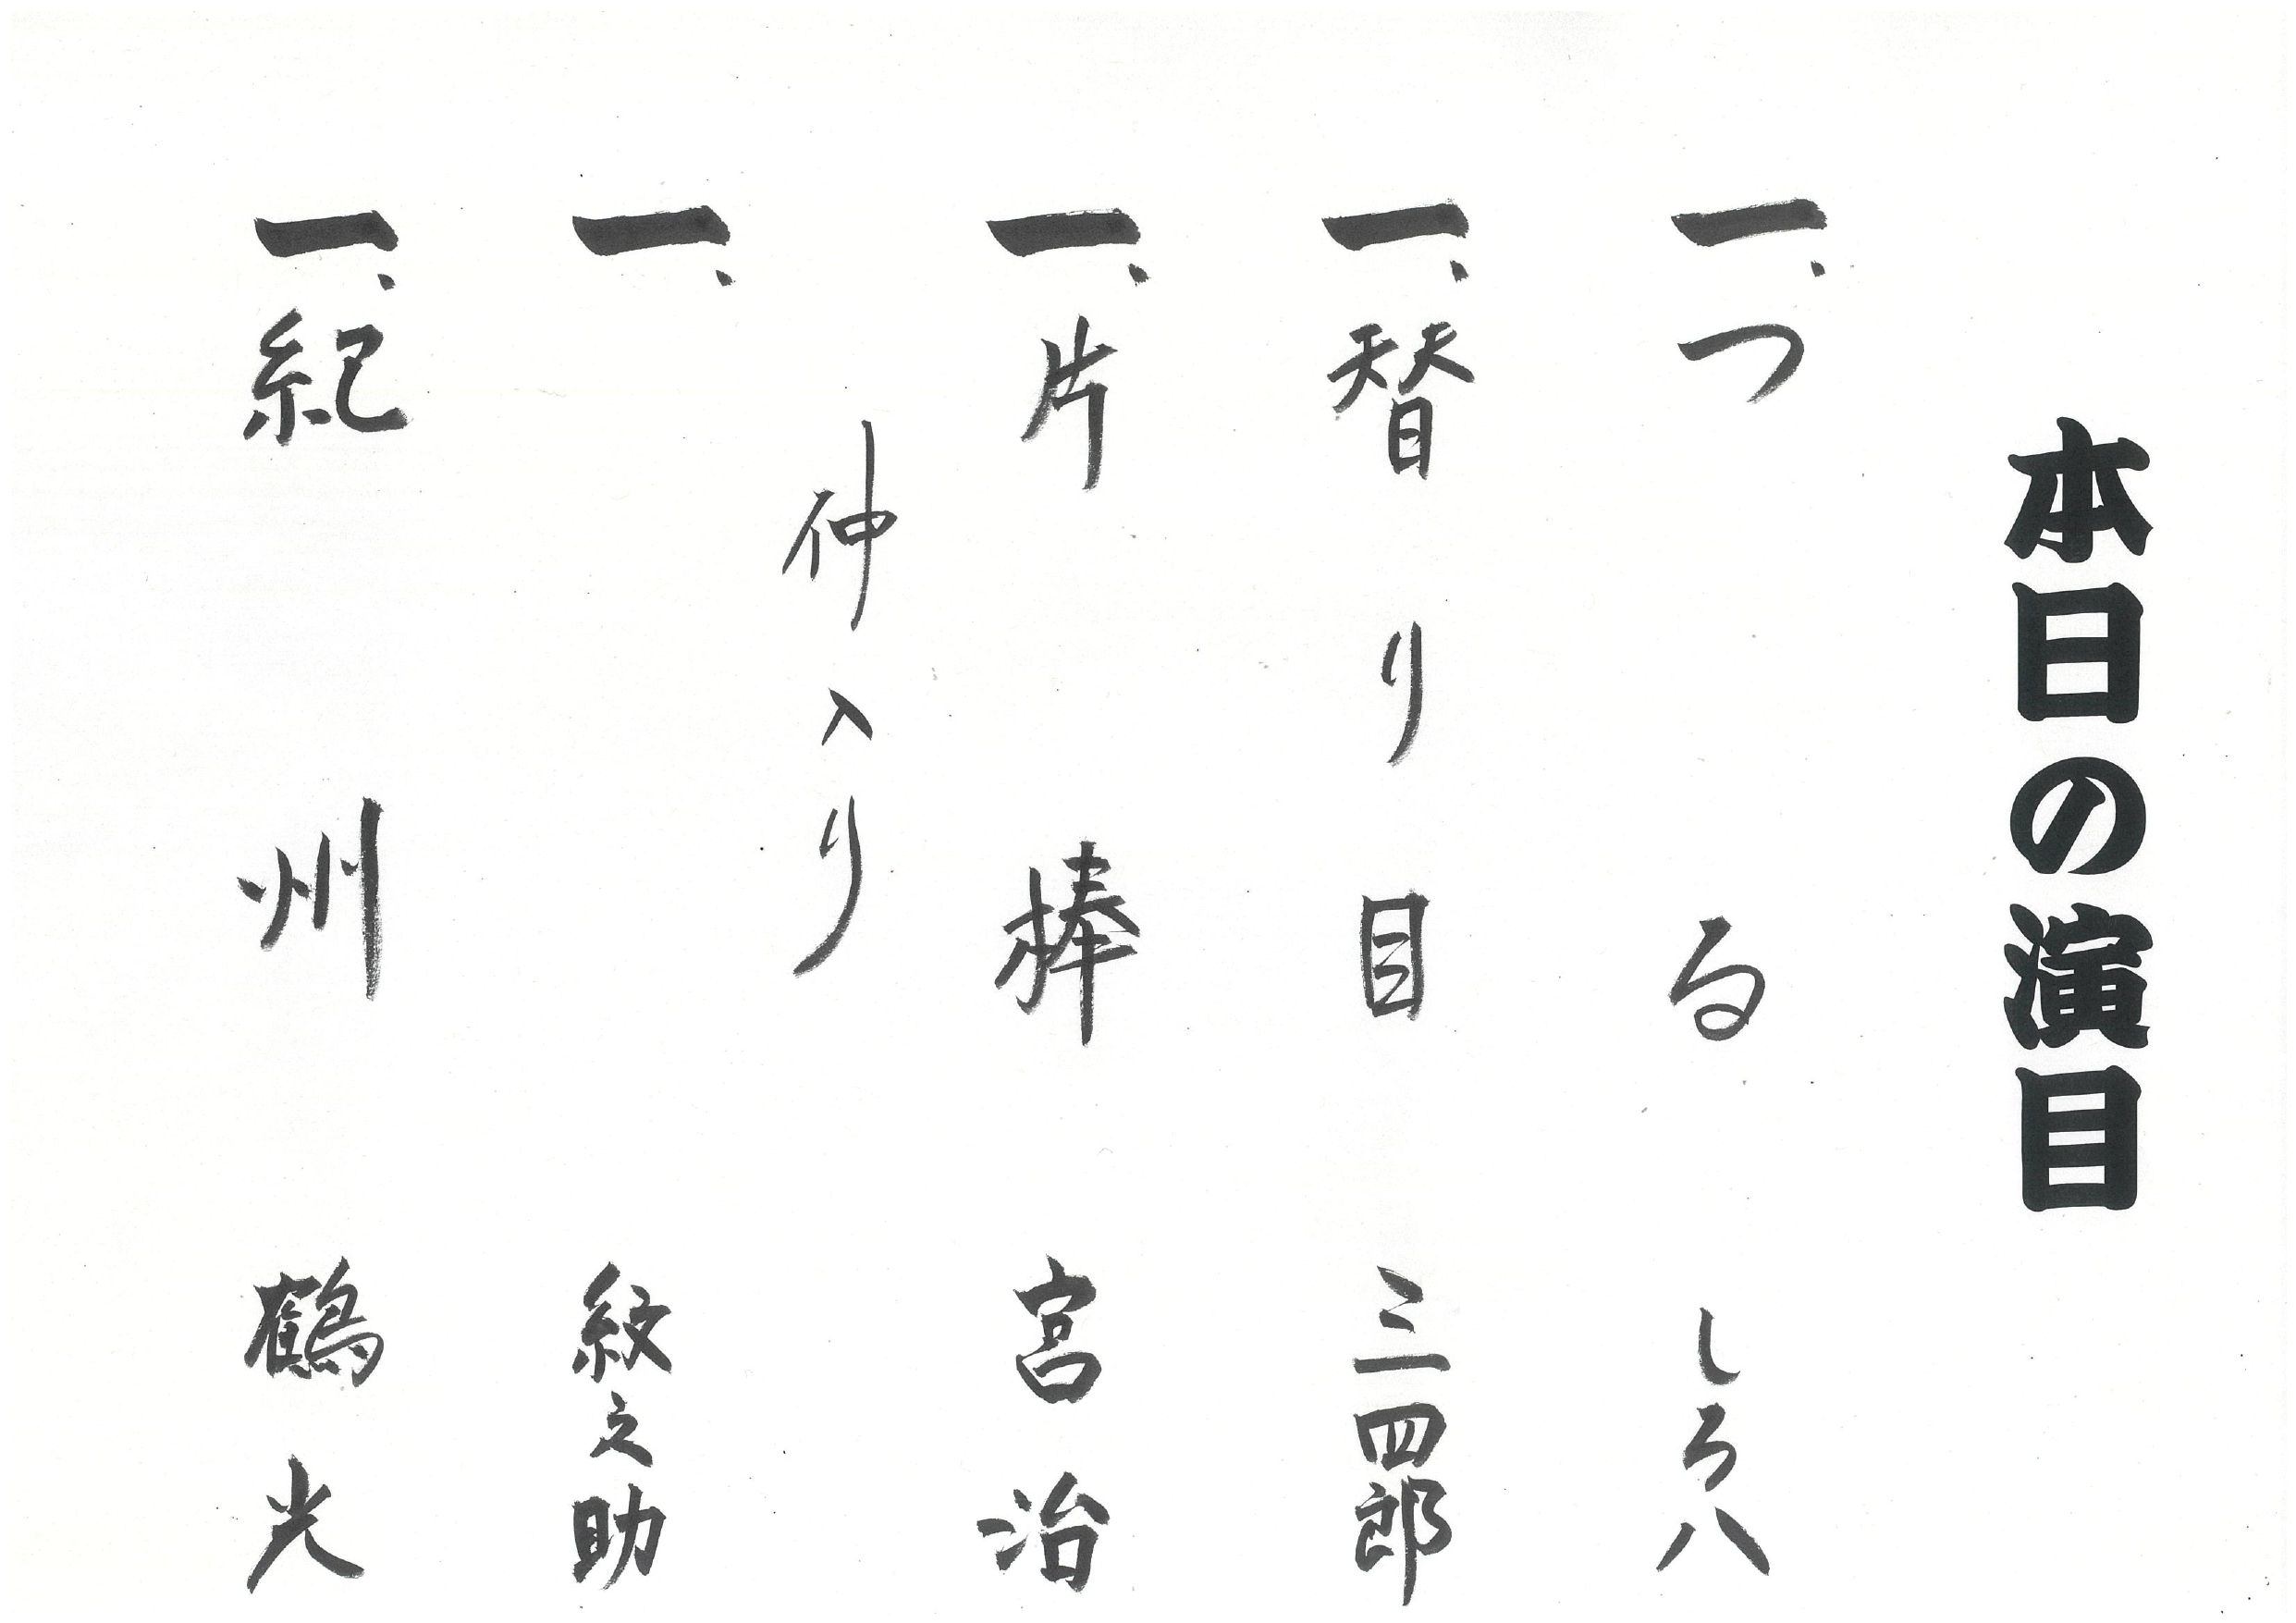 本日の演目
一、つる しろ八
一、替り目 三四郎
一、片棒 宮治
仲入り
一、 紋之助
一、紀州 鶴光